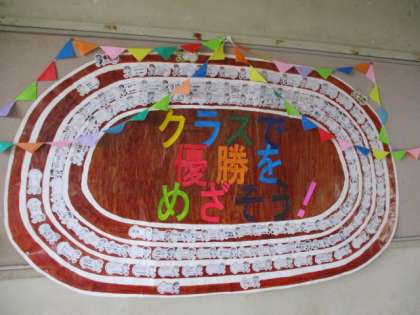 クラスで
優勝を
めざそう!